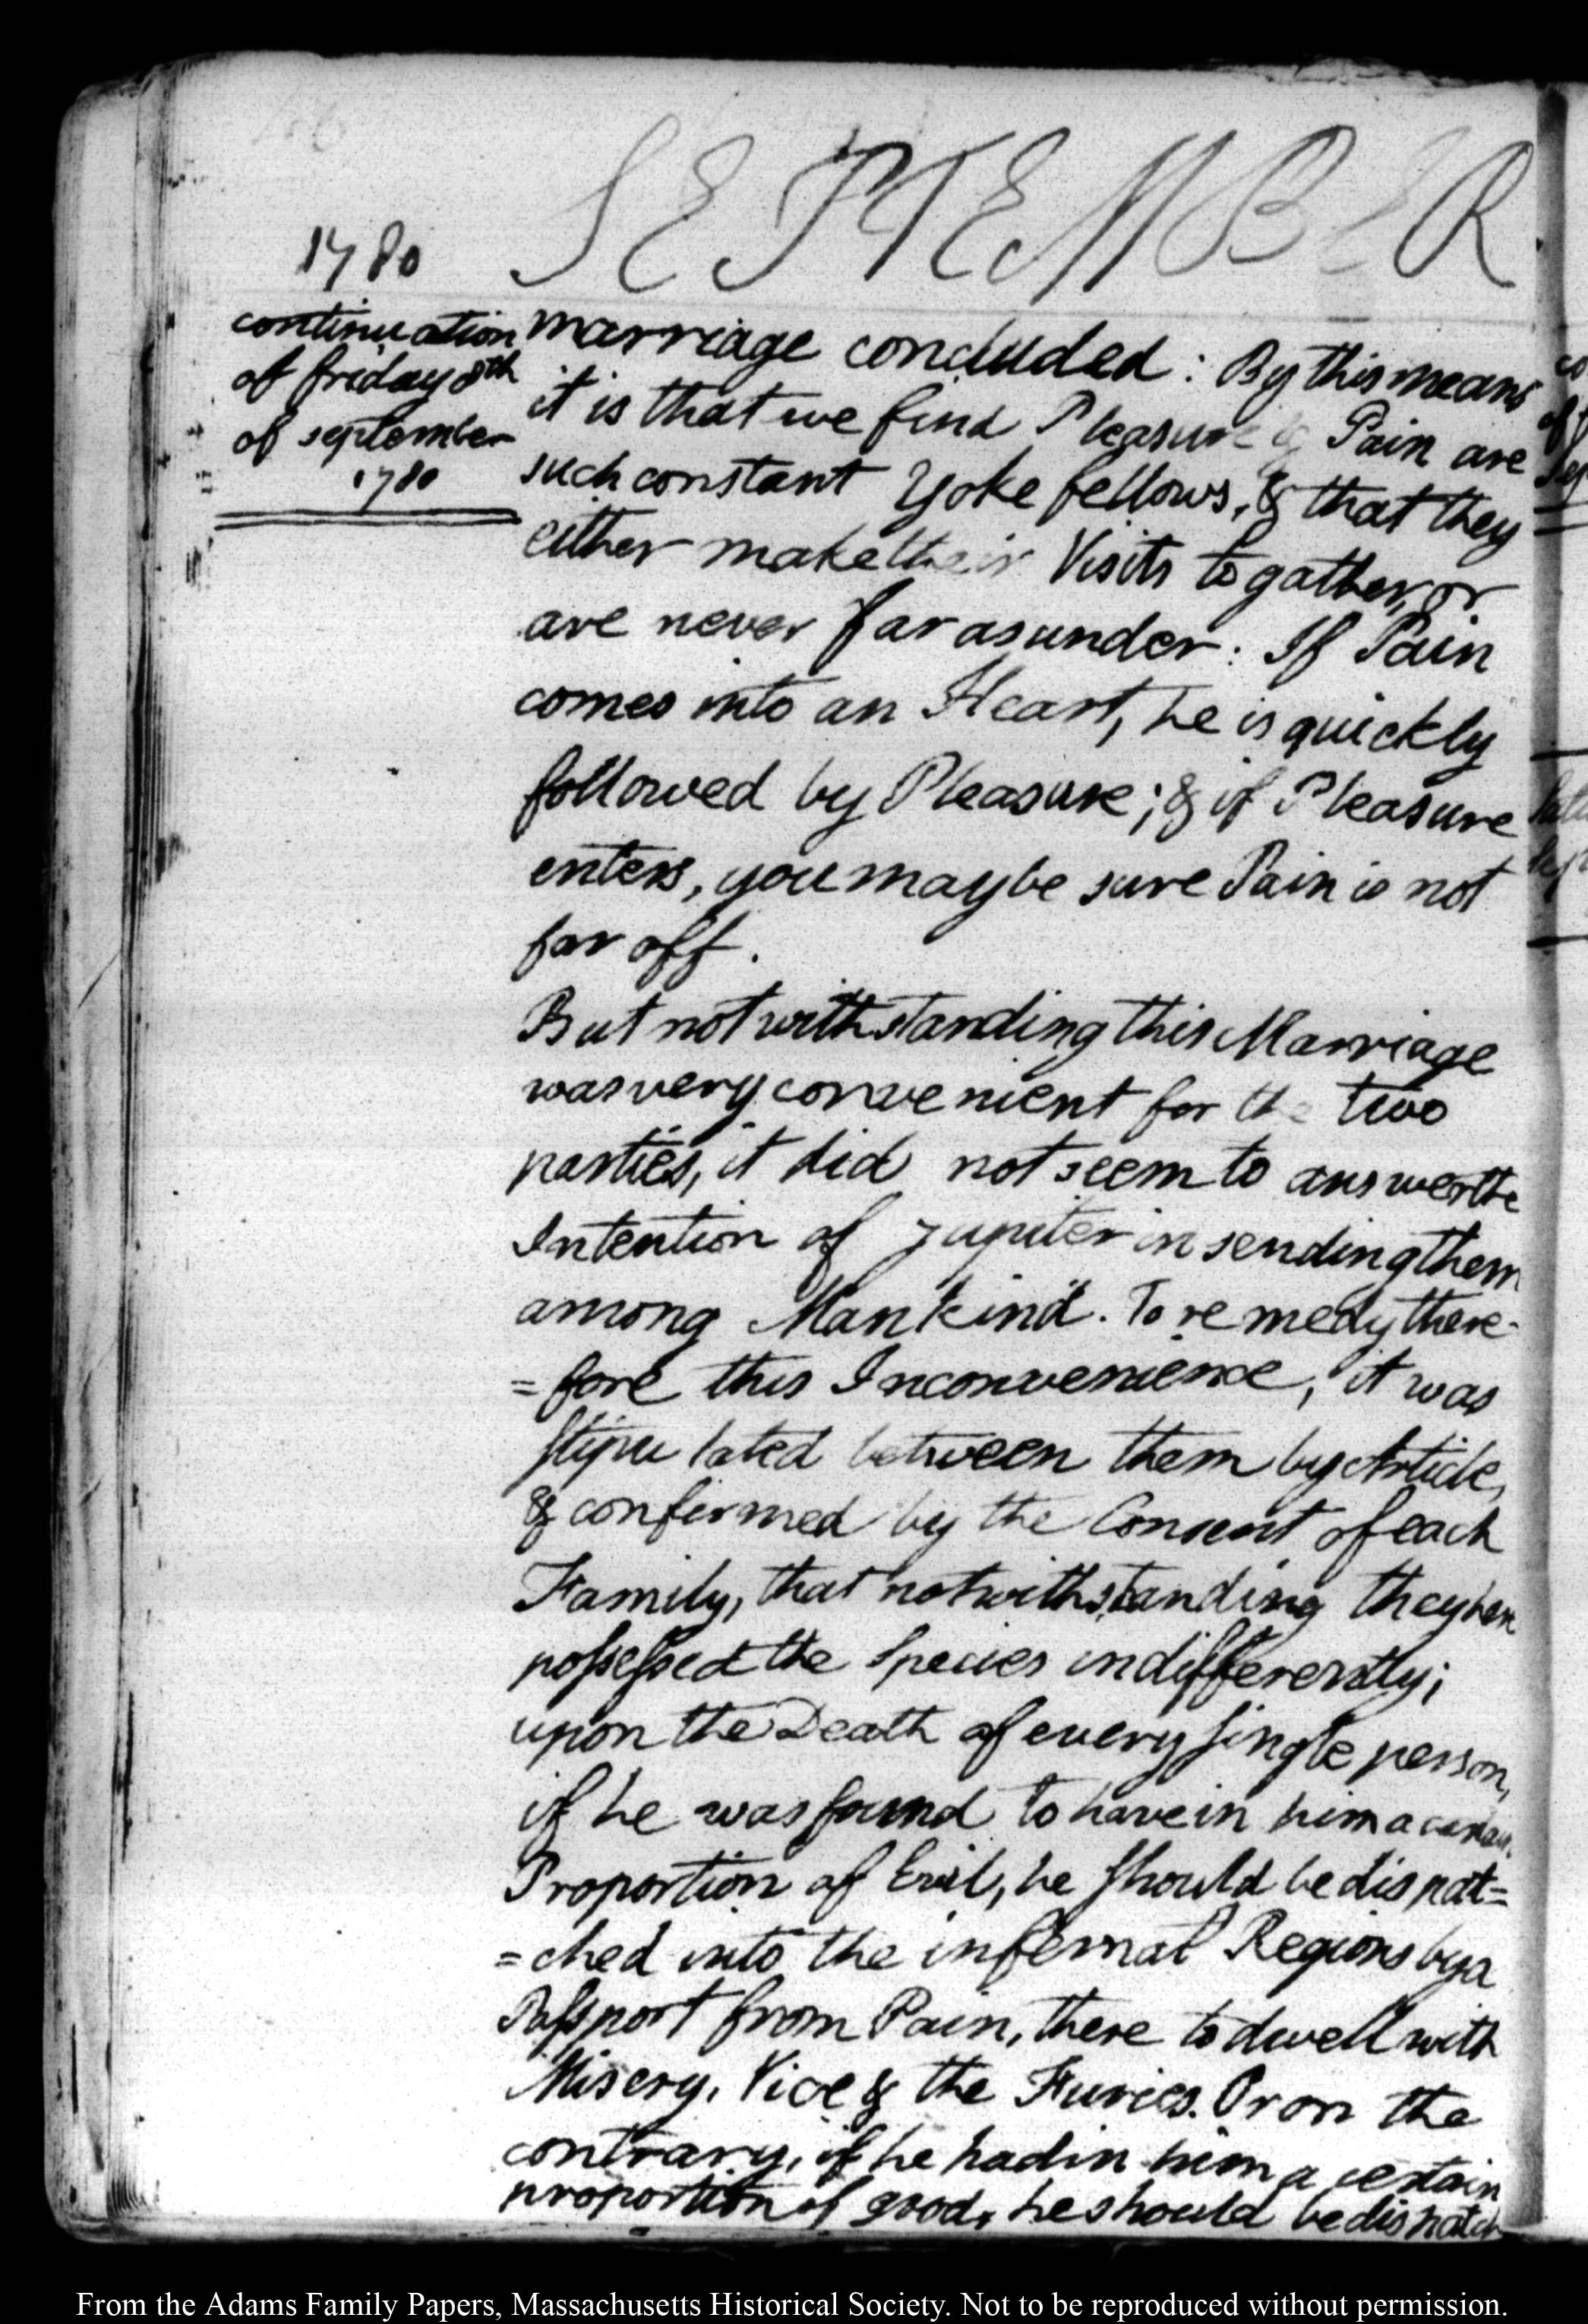 SEPTEMBER
1780
continuation
of friday 8th
of september
1780
marriage concluded: By this means
it is that we find Pleasure & Pain are
such constant Yoke fellows, & that they
either make their Visits to gather, or
are never far asunder: If Pain
comes into an Heart, he is quickly
followed by Pleasure; & if Pleasure
enters, you may be sure Pain is not
far off.
But notwithstanding this Marriage
was very convenient for the two
parties, it did not seem to answer the
Intention of Jupiter in sending them
among Mankind. To remedy there-
=fore this Inconvenience, it was
stipulated between them by Article,
& confirmed by the Consent of each
Family, that notwithstanding they here
possessed the Species indifferently;
upon the Death of every single person,
if he was found to have in him a certain
Proportion of Evil, he should be dispat=
=ched into the infernal Regions by a
Passport from Pain, there to dwell with
Misery, Vice & the Furies. Or on the
contrary, if he had in him a certain
proportion of good, he should be dispatch
From the Adams Family Papers, Massachusetts Historical Society. Not to be reproduced without permission.